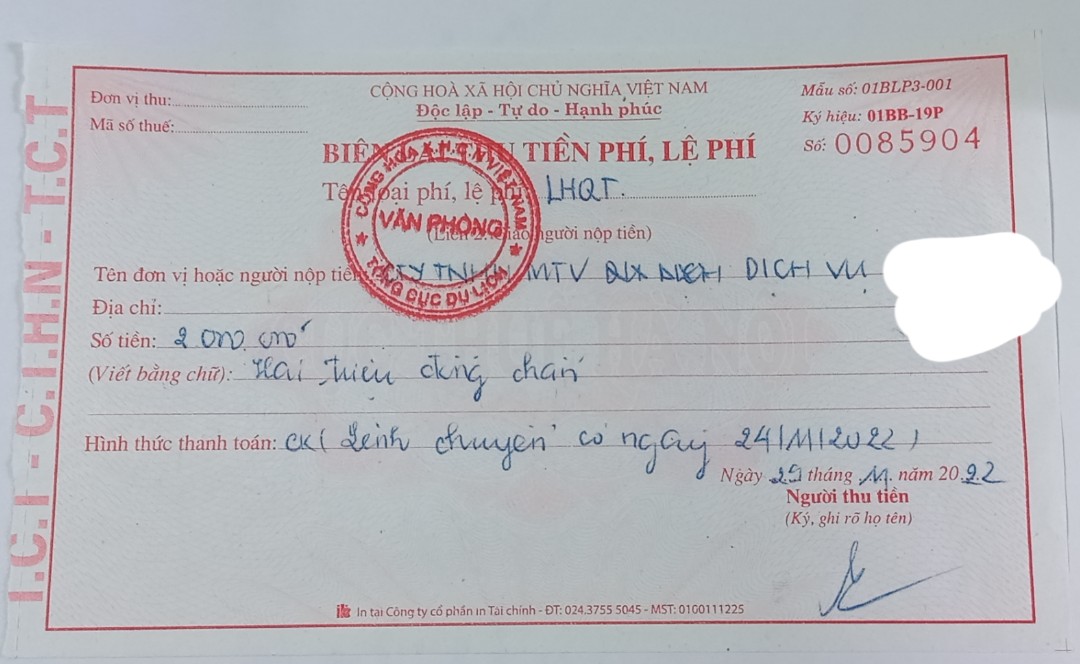 I.C.T - C.I.H.N - T.C.T
Đơn vị thu:
Mã số thuế:
CỘNG HOÀ XÃ HỘI CHỦ NGHĨA VIỆT NAM
Độc lập - Tự do - Hạnh phúc
Mẫu số: 01BLP3-001
Ký hiệu: 01BB-19P
Số: 0085904
BIÊN LAI THU TIỀN PHÍ, LỆ PHÍ
Tên loại phí, lệ phí: LHQT.
(Liên 2: Giao người nộp tiền)
CỘNG HÒA X.H.C.N VIỆT NAM
VĂN PHÒNG
TỔNG CỤC DU LỊCH
Tên đơn vị hoặc người nộp tiền: CTY TNHH MTV DỊCH VỤ
Địa chỉ:
Số tiền: 2.000.000đ
(Viết bằng chữ): Hai triệu đồng chẵn
Hình thức thanh toán: CK( Lệnh chuyển có ngày 24/11/2022)
Ngày 29 tháng 11 năm 2022
Người thu tiền
(Ký, ghi rõ họ tên)
In tại Công ty cổ phần in Tài chính - ĐT: 024.3755 5045 - MST: 0100111225